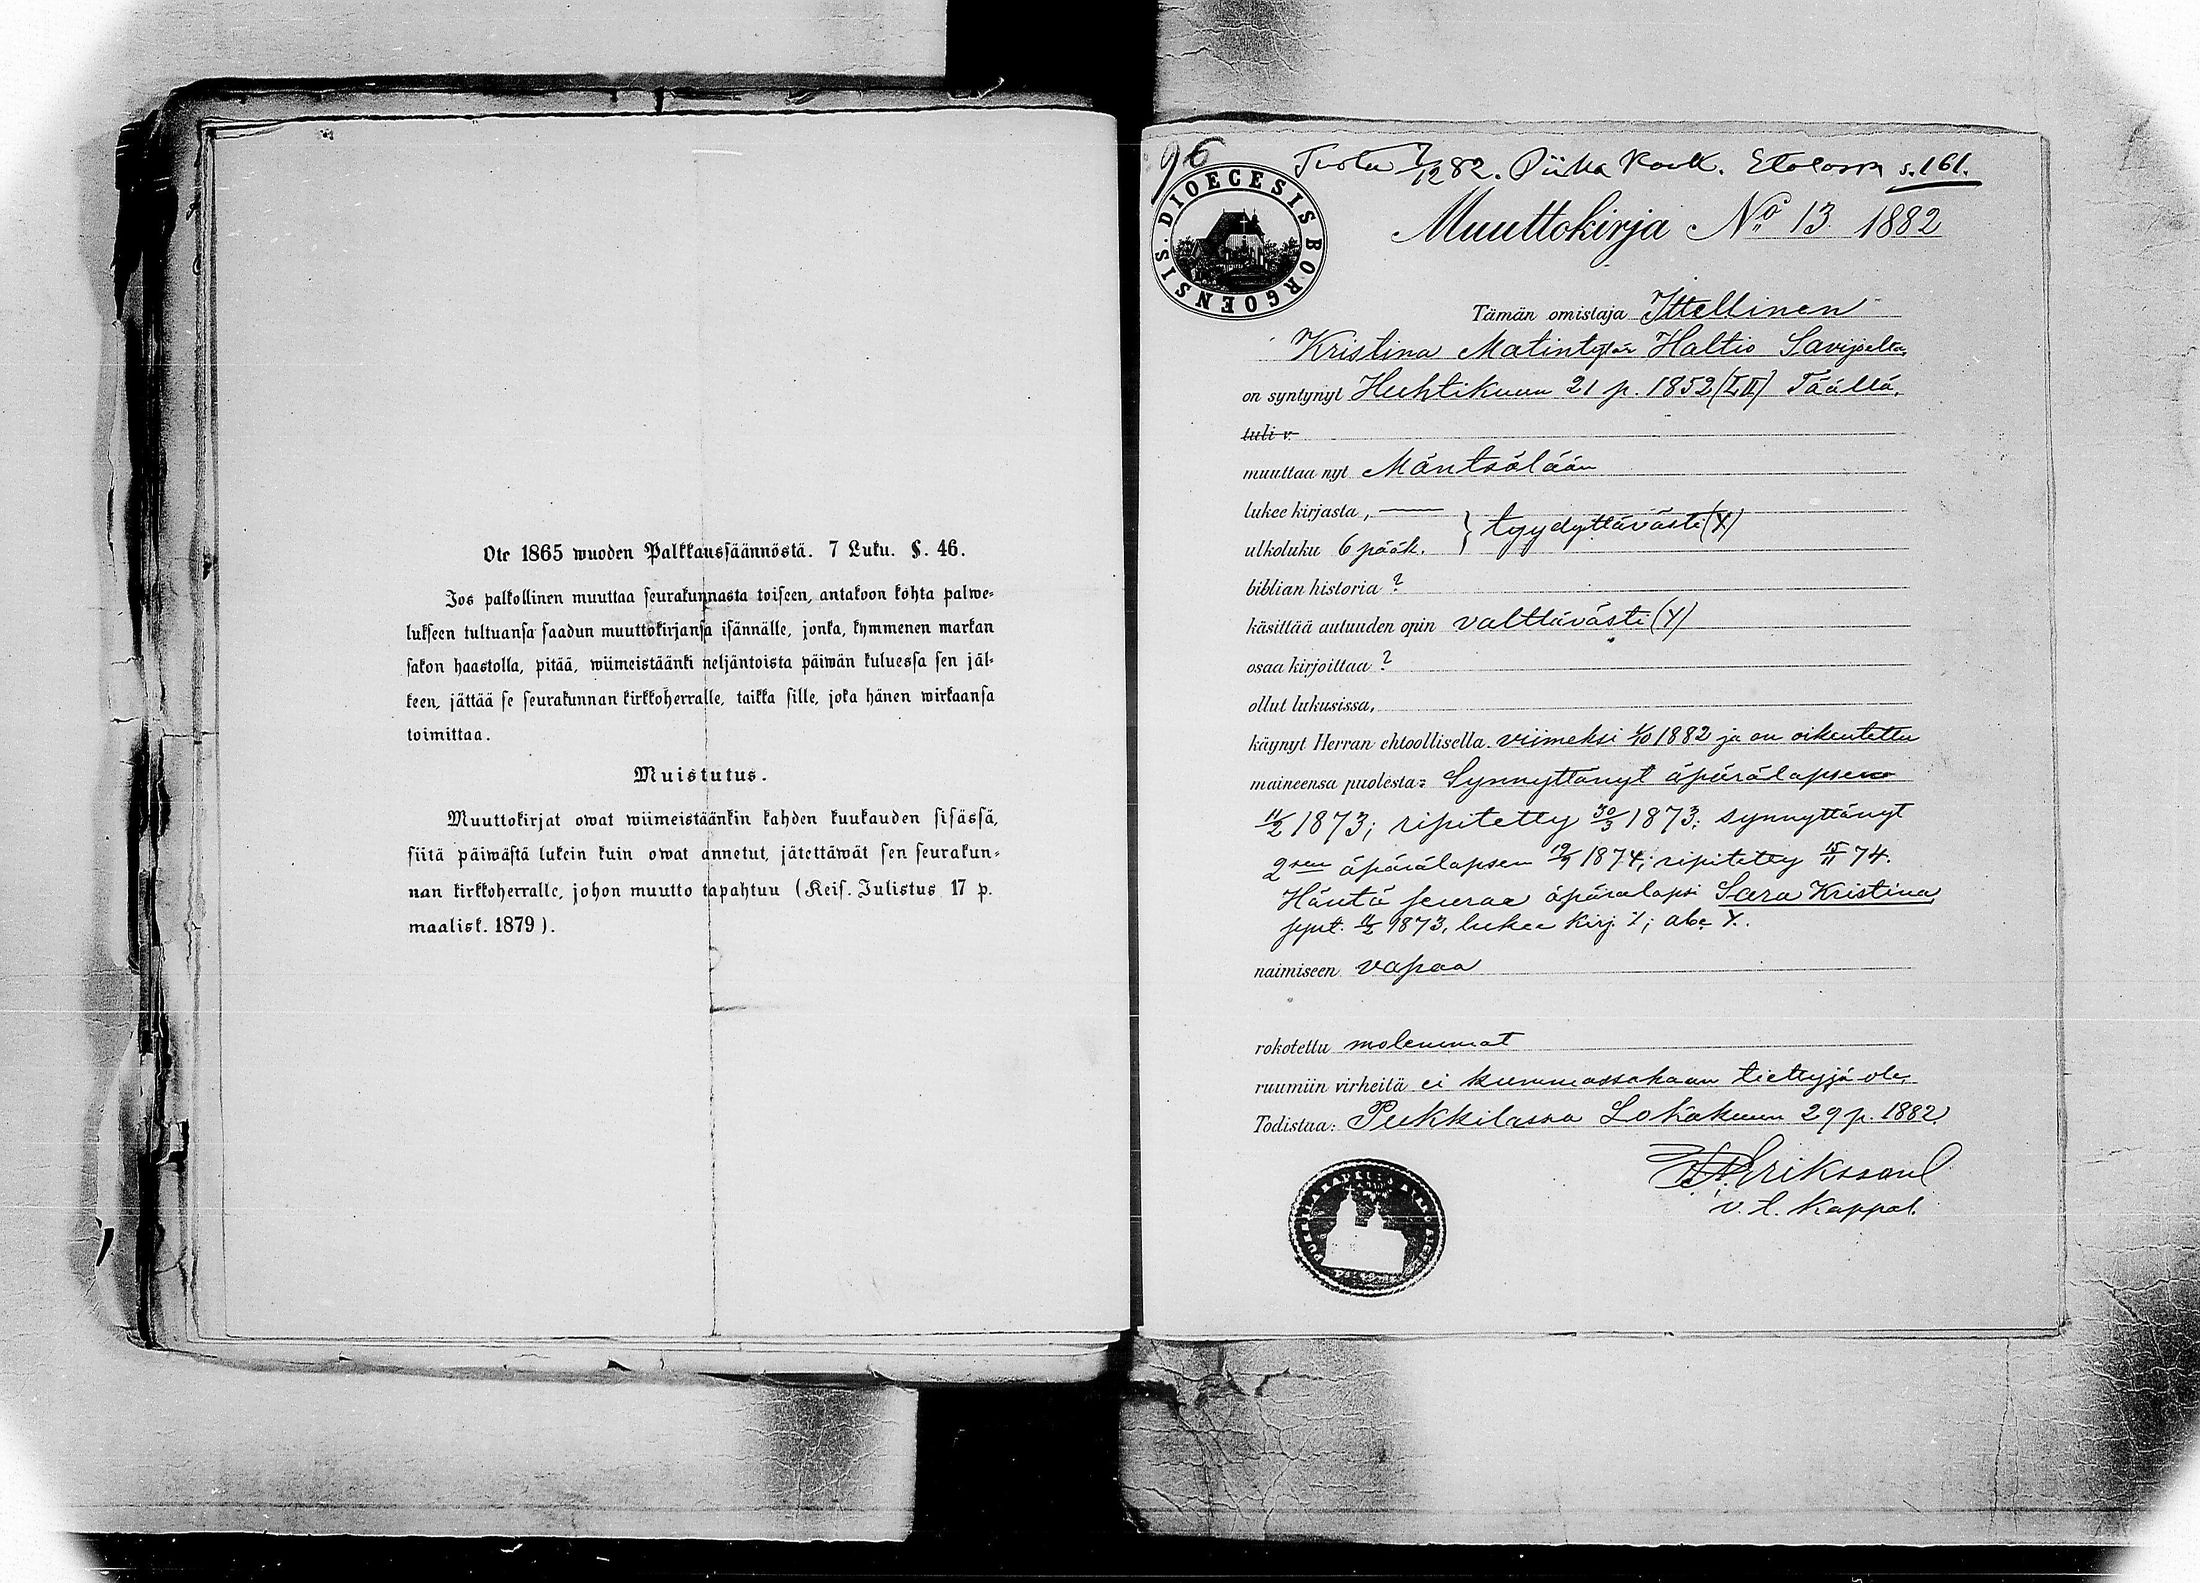 Ote 1865 wuoden Palkkaussäännöstä. 7 Luku. §. 46.
Jos palkollinen muuttaa seurakunnasta toiseen, antakoon kohta palwe-
lukseen tultuansa saadun muuttokirjansa isännälle, jonka, kymmenen markan
sakon haastolla, pitää, wiimeistäänki neljäntoista päiwän kuluessa sen jäl-
keen, jättää se seurakunnan kirkkoherralle, taikka sille, joka hänen wirkaansa
toimittaa.
Muistutus.
Muuttokirjat owat wiimeistäänkin kahden kuukauden sisässä,
siitä päiwästä lukein kuin owat annetut, jätettäwät sen seurakun-
nan kirkkoherralle, johon muutto tapahtuu (Keis. Julistus 17 p.
maalisk. 1879).
96
1/12 82. Piika s. 161.
DIOECESIS BORGOENSIS.
Muuttokirja No 13. 1882
Tämän omistaja Ittellinen
Kristina Matintytär Haltio Savijoelta,
on syntynyt Huhtikuun 21 p. 1852 (LII) Täällä,
tuli v.
muuttaa nyt Mäntsälään
lukee kirjasta,
ulkoluku 6 pääk. } tyydyttävästi (X)
biblian historia ?
käsittää autuuden opin välttävästi (Y)
osaa kirjoittaa ?
ollut lukusissa,
käynyt Herran ehtoollisella viimeksi 1/10 1882 ja on oikeutettu
maineensa puolesta: Synnyttänyt äpärälapsen
11/2 1873; ripitetty 30/3 1873; synnyttänyt
2sen äpärälapsen 19/9 1874; ripitetty 15/11 74.
Häntä seuraa äpäralapsi Sara Kristina,
synt. 11/2 1873, lukee kirj. ; abc Y.
naimiseen vapaa
rokotettu molemmat
ruumiin virheitä ei kummassakaan tiettyjä ole,
Todistaa: Pukkilassa Lokakuun 29 p. 1882
Eriksson
v. t. Kappal.